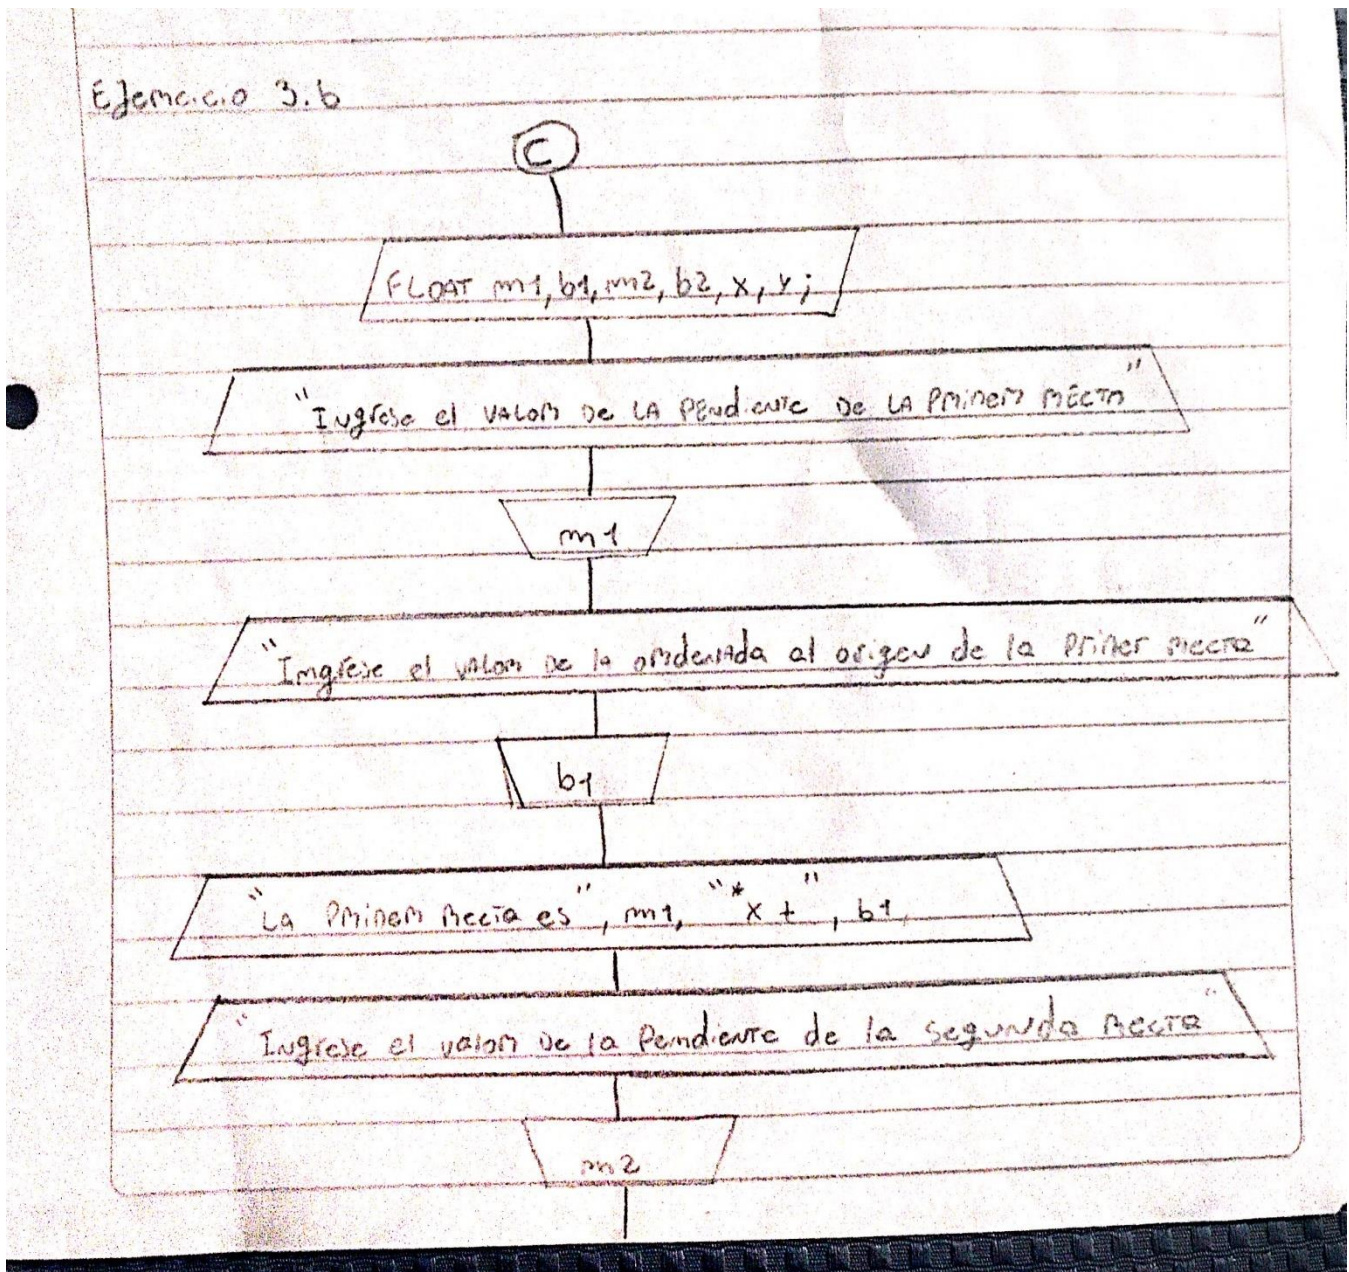 Ejercicio 3.b
C
FLOAT m1, b1, m2, b2, x, y;
"Ingrese el VALOR De LA PENdiente De LA Primer RECTA"
m1
"Ingrese el valor De la ordenAda al origen de la Primer recta"
b1
"La Primer Recta es", m1, "*x +", b1
"Ingrese el valor De la Pendiente de la segunda Recta"
m2